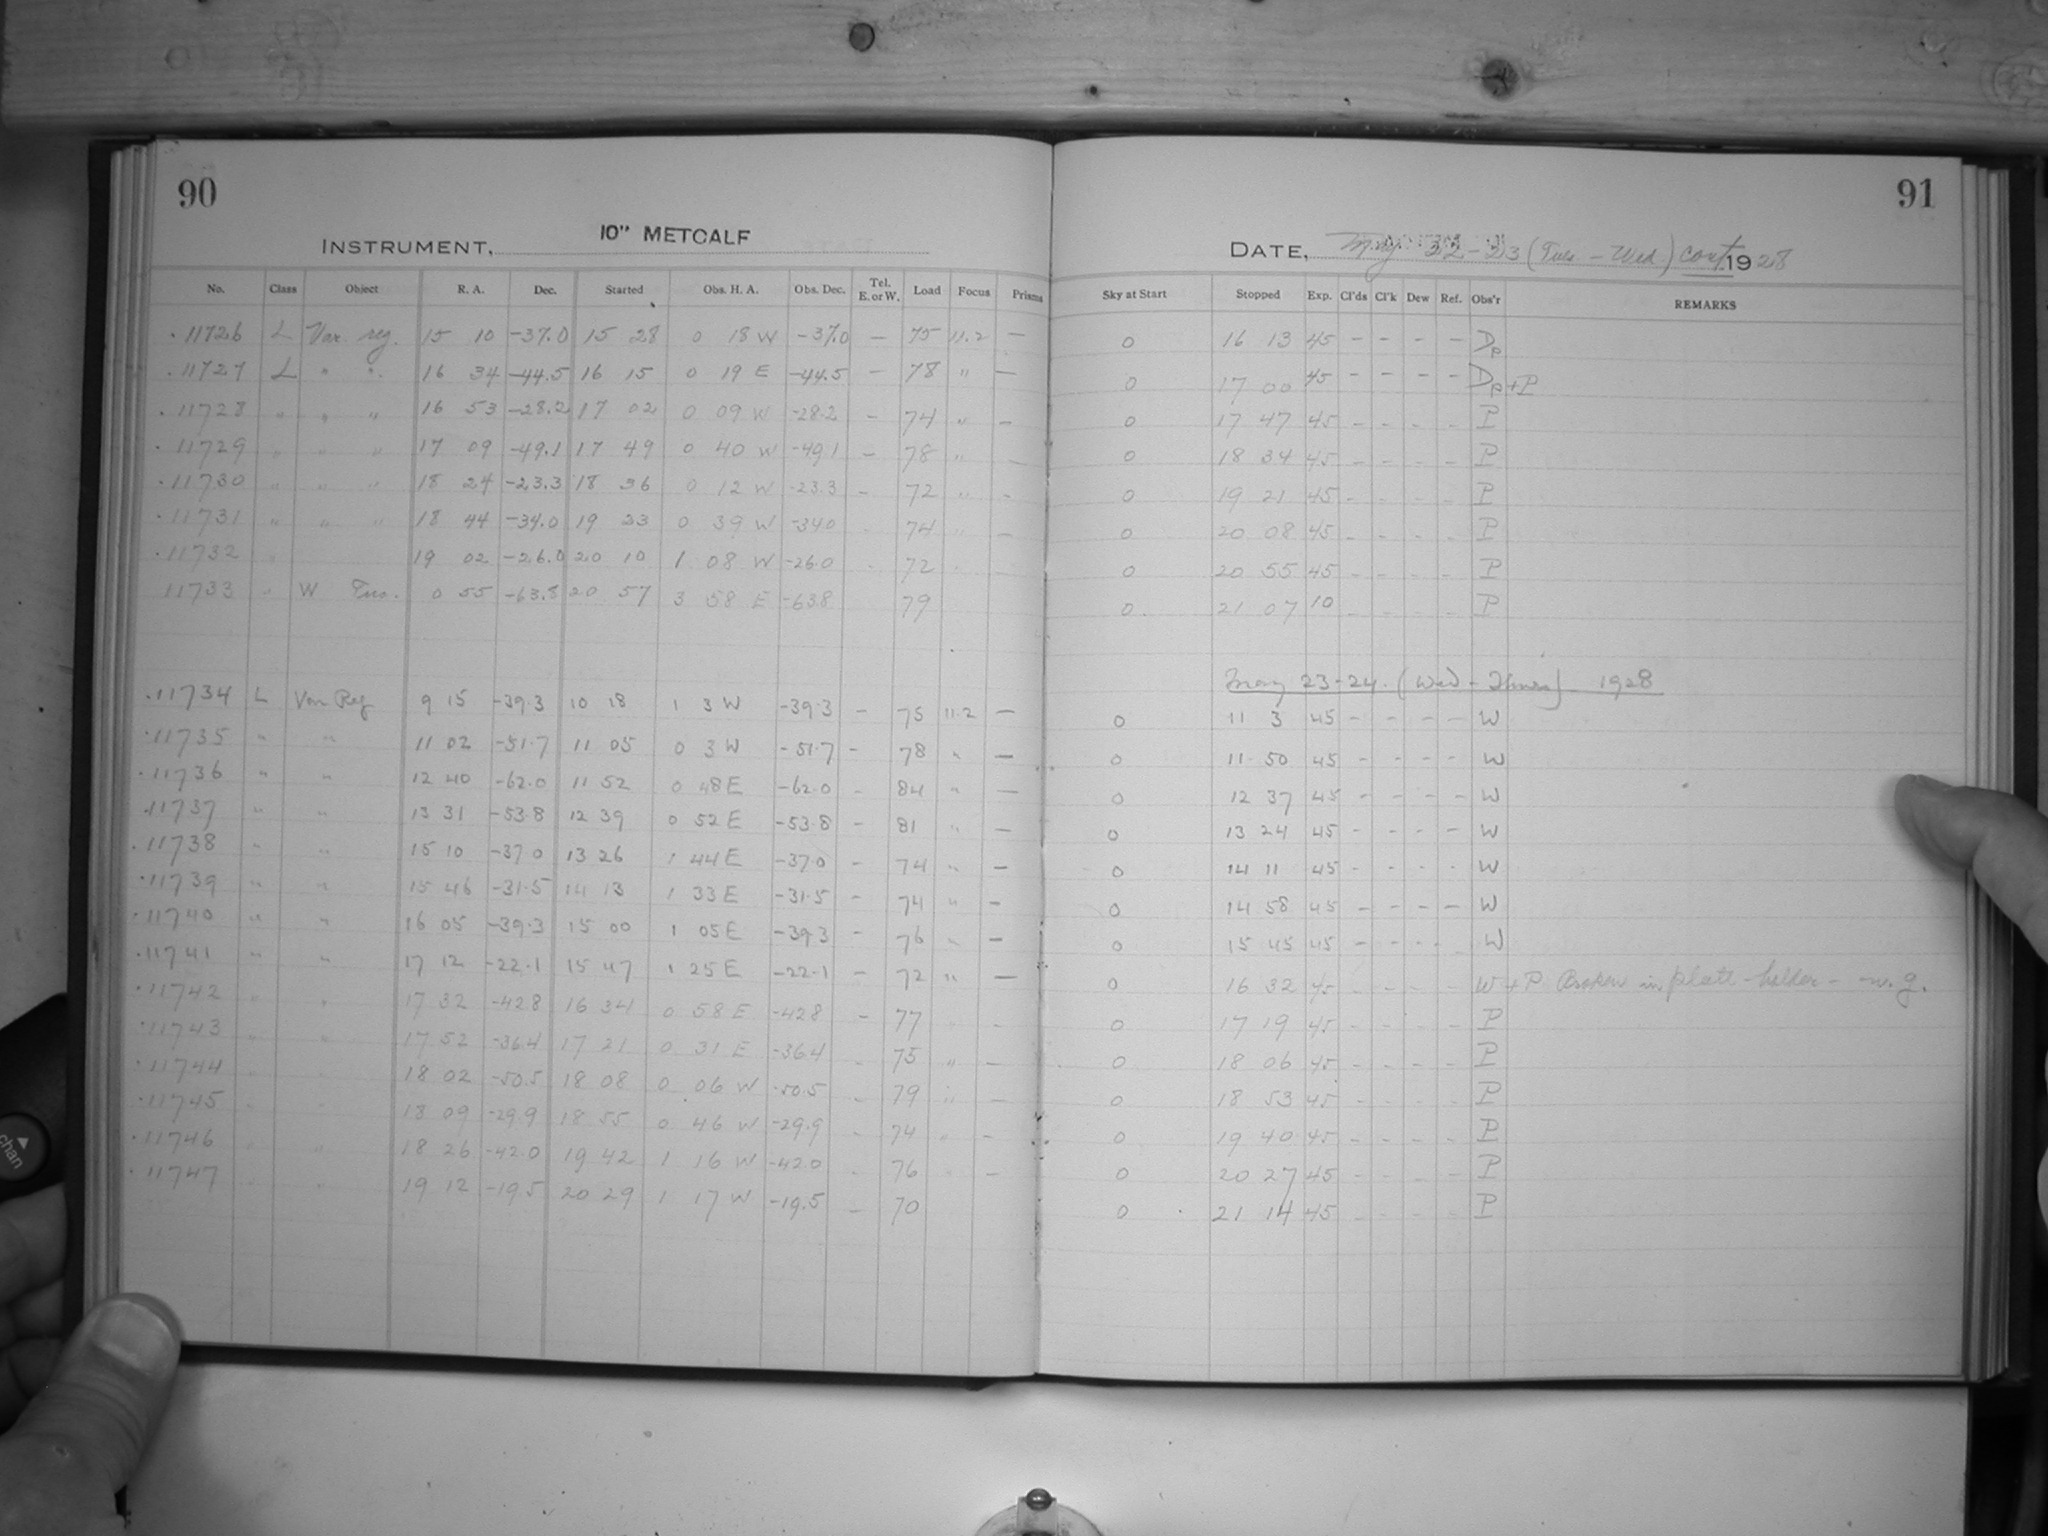 90
INSTRUMENT, 10" METCALF
No. Class Object R. A. Dec. Started Obs. H. A. Obs. Dec. Tel. E. or W. Load Focus Prisms
.11726 L Var. reg. 15 10 -37.0 15 28 0 18 W -37.0 - 75 11.2 -
.11727 L " " 16 34 -44.5 16 15 0 19 E -44.5 - 78 " -
.11728 " " " 16 53 -28.2 17 02 0 09 W -28.2 - 74 " -
.11729 " " " 17 09 -49.1 17 49 0 40 W -49.1 - 78 " -
.11730 " " " 18 24 -23.3 18 36 0 12 W -23.3 - 72 " -
.11731 " " " 18 44 -34.0 19 23 0 39 W -34.0 - 74 " -
.11732 " 19 02 -26.0 20 10 1 08 W -26.0 - 72
11733 " W Tuc. 0 55 -63.8 20 57 3 58 E -63.8 79
.11734 L Var Reg 9 15 -39.3 10 18 1 3 W -39.3 - 75 11.2 -
.11735 " " 11 02 -51.7 11 05 0 3 W -51.7 - 78 " -
.11736 " " 12 40 -62.0 11 52 0 48 E -62.0 - 84 " -
.11737 " " 13 31 -53.8 12 39 0 52 E -53.8 - 81 " -
.11738 " " 15 10 -37.0 13 26 1 44 E -37.0 - 74 " -
.11739 " " 15 46 -31.5 14 13 1 33 E -31.5 - 74 " -
.11740 " " 16 05 -39.3 15 00 1 05 E -39.3 - 76 " -
.11741 " " 17 12 -22.1 15 47 1 25 E -22.1 - 72 " -
.11742 " " 17 32 -42.8 16 34 0 58 E -42.8 - 77 " -
.11743 " " 17 52 -36.4 17 21 0 31 E -36.4 - 75 " -
.11744 " " 18 02 -50.5 18 08 0 06 W -50.5 - 79 " -
.11745 " " 18 09 -29.9 18 55 0 46 W -29.9 - 74 " -
.11746 " " 18 26 -42.0 19 42 1 16 W -42.0 - 76 " -
.11747 " " 19 12 -19.5 20 29 1 17 W -19.5 - 70
91
DATE, May 22-23 (Tues - Wed) cont 1928
Sky at Start Stopped Exp. Cl'ds Cl'k Dew Ref. Obs'r REMARKS
0 16 13 45 - - - - Dp
0 17 00 45 - - - - Dp + P
0 17 47 45 - - - - P
0 18 34 45 - - - - P
0 19 21 45 - - - - P
0 20 08 45 - - - - P
0 20 55 45 - - - - P
0 21 07 10 - - - - P
May 23-24 (Wed - Thurs) 1928
0 11 3 45 - - - - W
0 11 50 45 - - - - W
0 12 37 45 - - - - W
0 13 24 45 - - - - W
0 14 11 45 - - - - W
0 14 58 45 - - - - W
0 15 45 45 - - - - W
0 16 32 45 - - - - W + P Broken in plate-holder - n. g.
0 17 19 45 - - - - P
0 18 06 45 - - - - P
0 18 53 45 - - - - P
0 19 40 45 - - - - P
0 20 27 45 - - - - P
0 21 14 45 - - - - P
chan